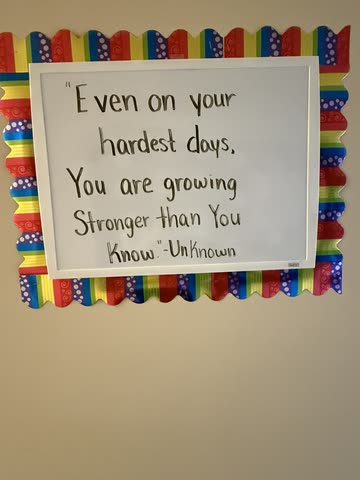 "Even on your
hardest days,
You are growing
Stronger than You
Know."-UnKnown